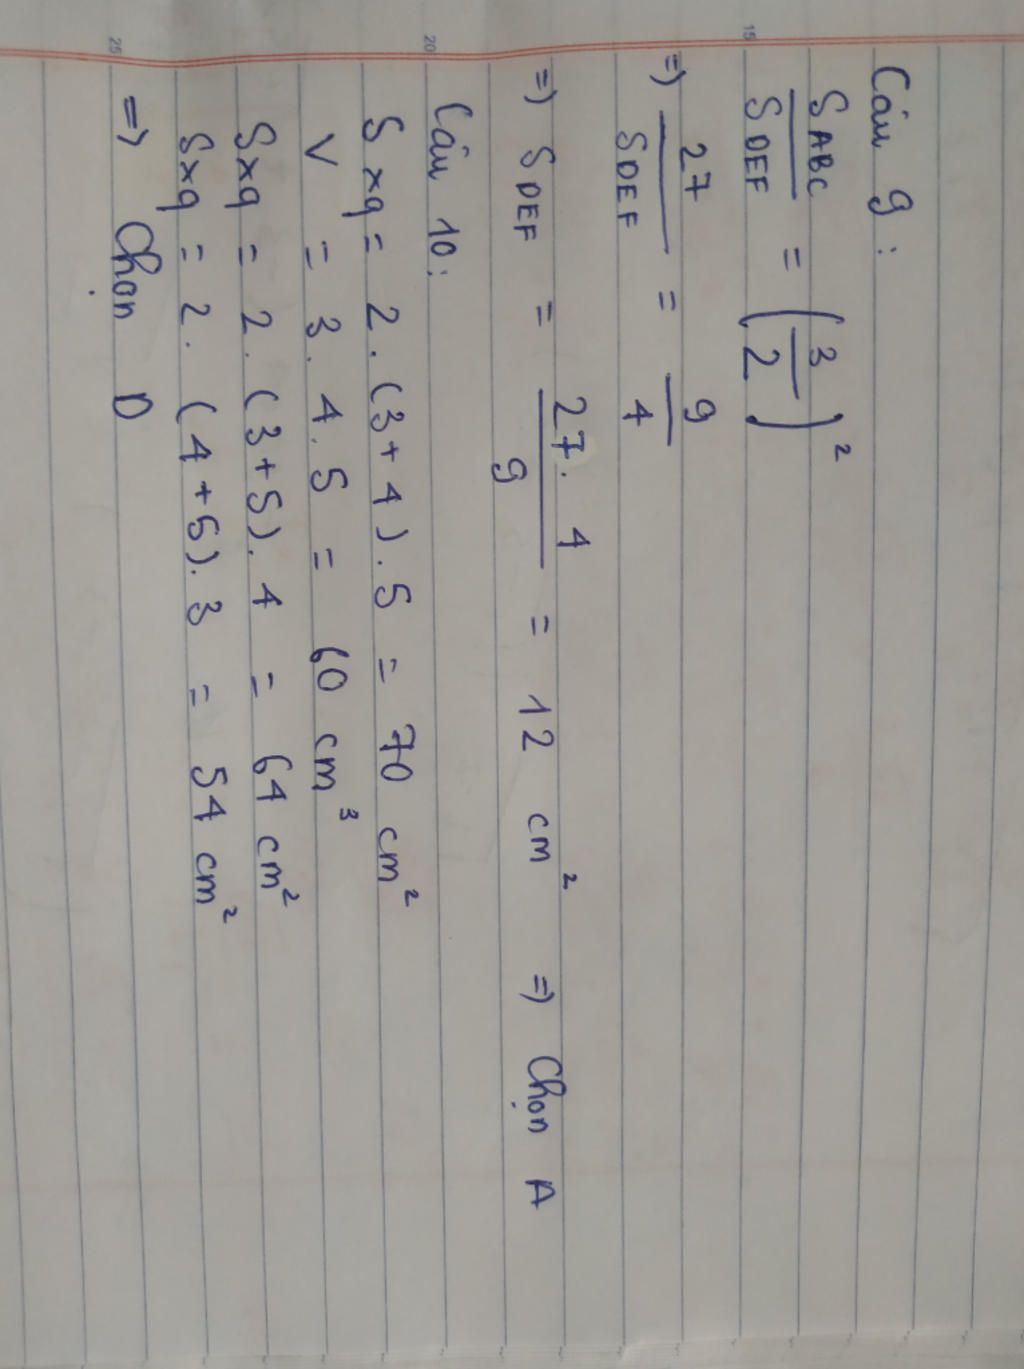 Câu 9:
S ABC / S DEF = (3/2)²
=) 27 / S DEF = 9/4
=) S DEF = 27. 4 / 9 = 12 cm² =) Chọn A
Câu 10:
Sxq = 2.(3+4).5 = 70 cm²
V = 3. 4. 5 = 60 cm³
Sxq = 2.(3+5). 4 = 64 cm²
Sxq = 2. (4+5).3 = 54 cm²
=> Chọn D
15
20
25